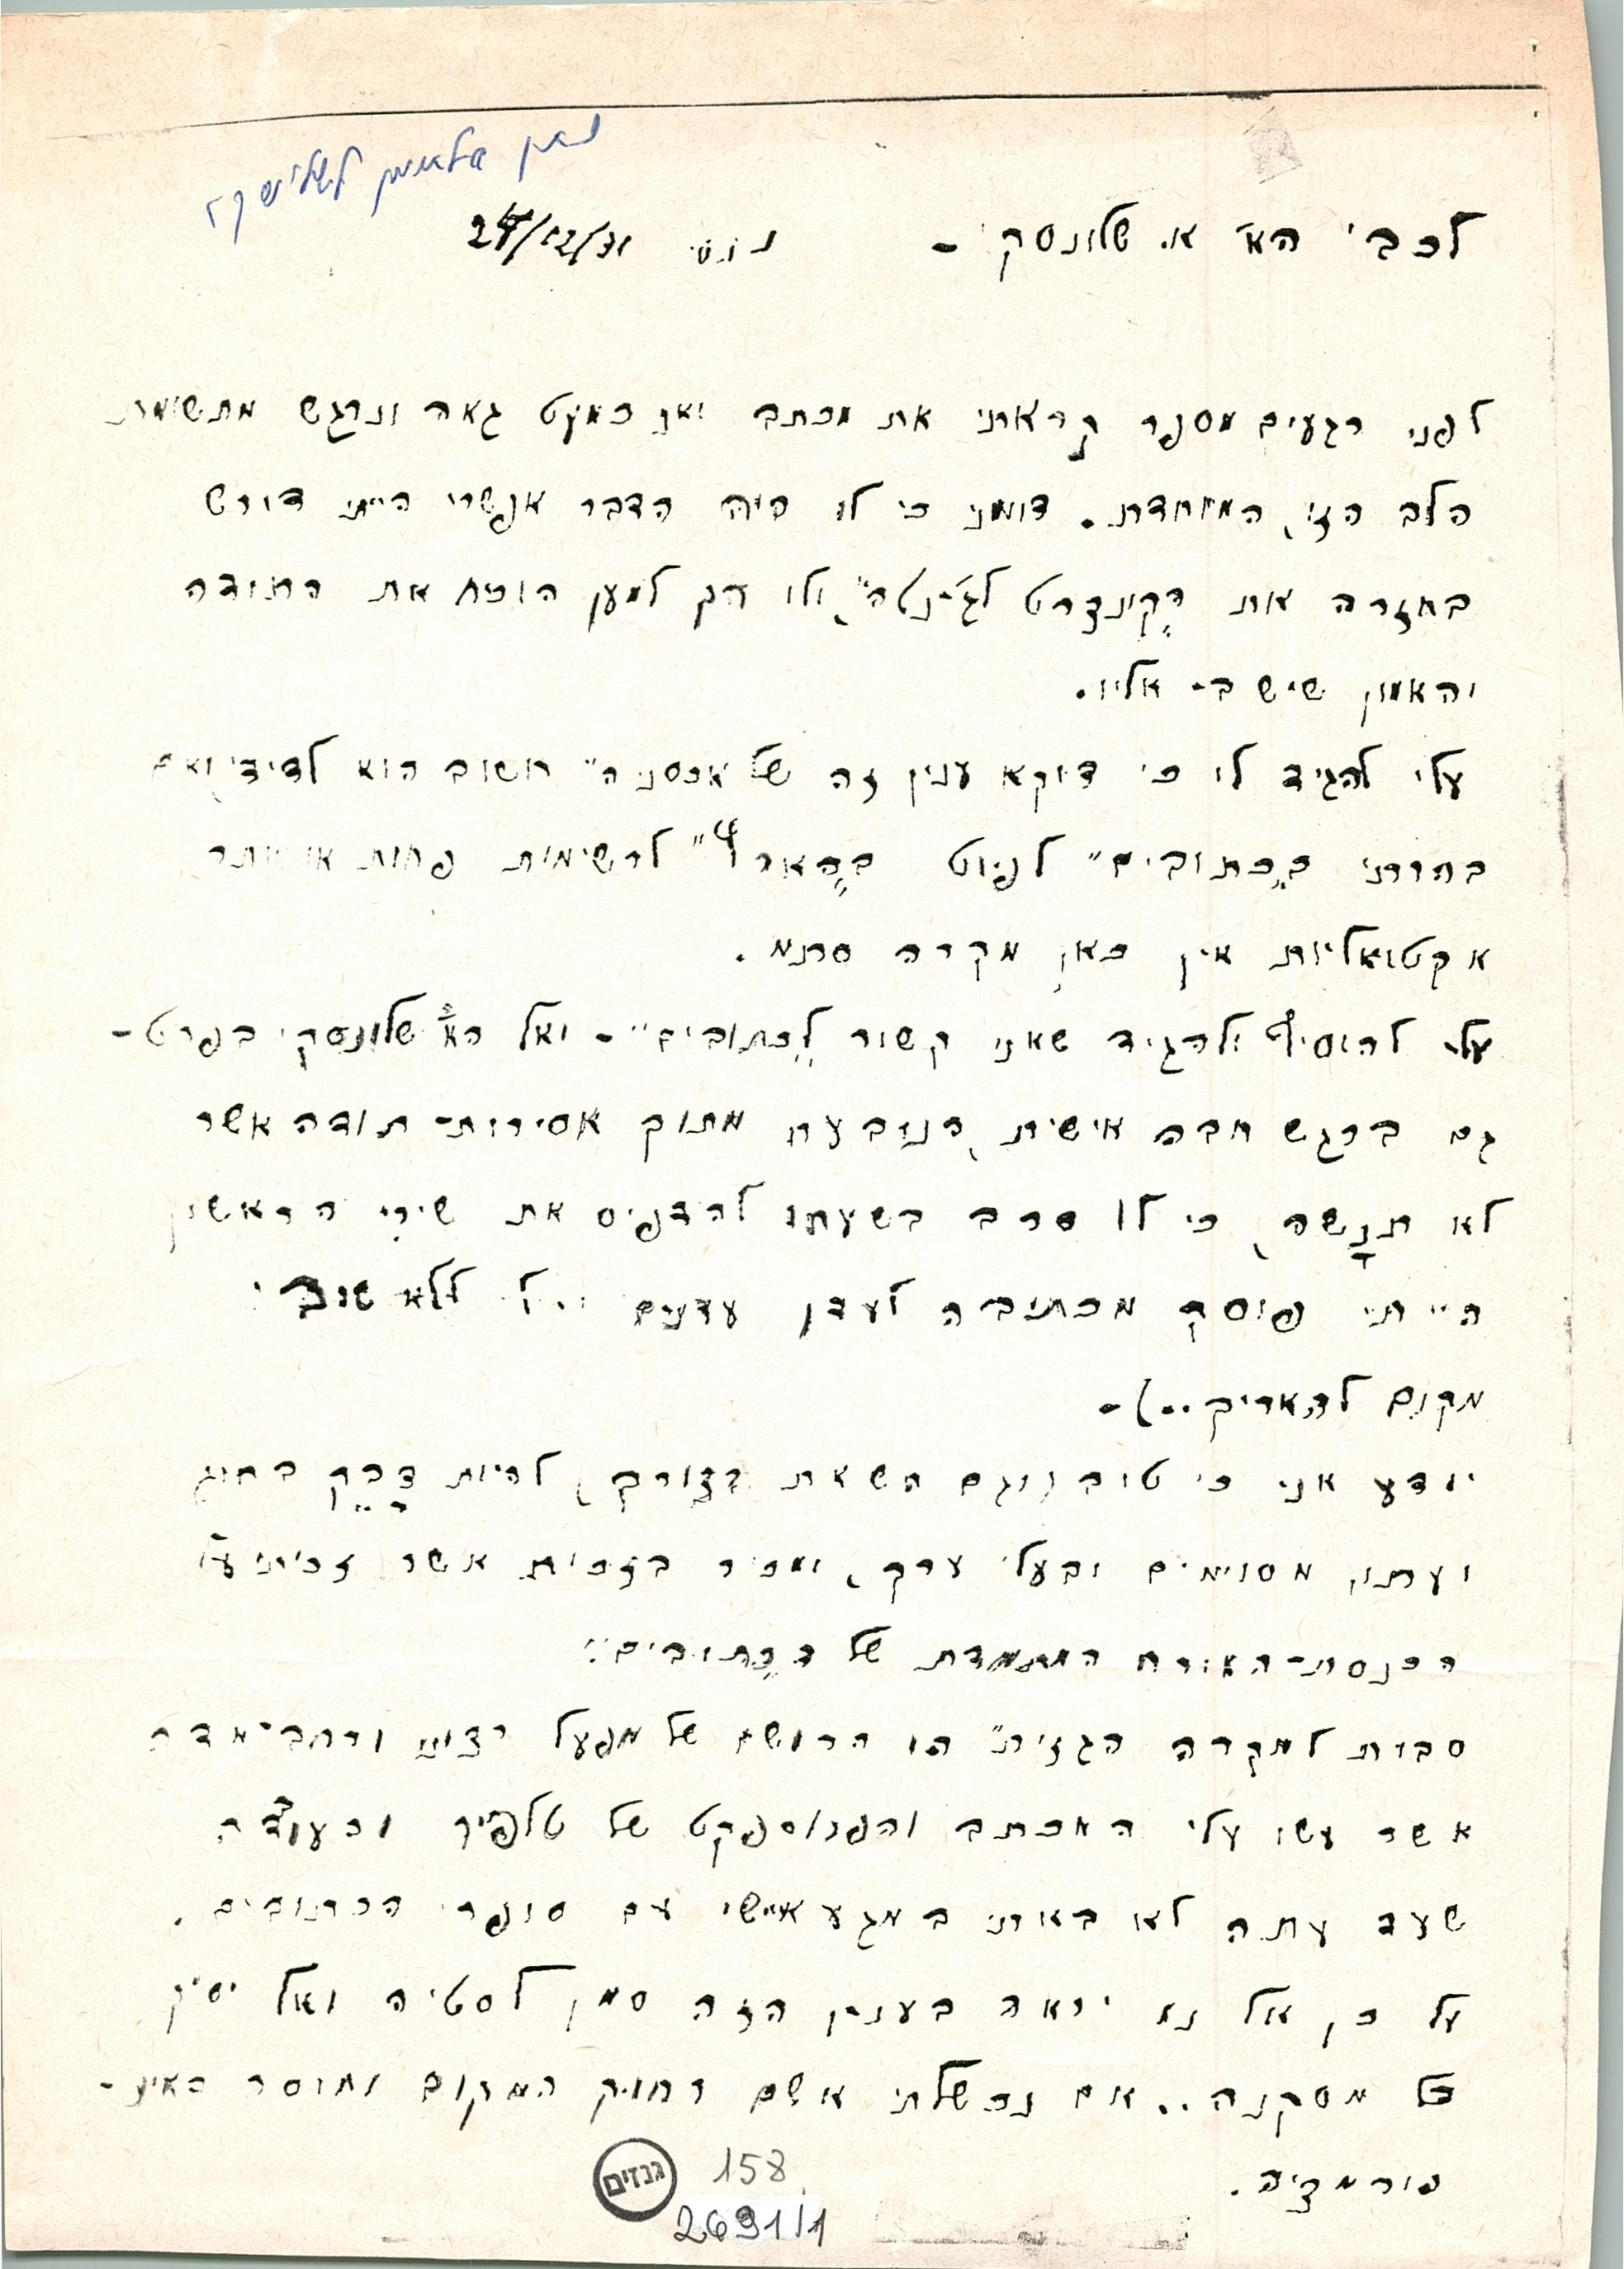 נתן אלתרמן לשלונסקי
לכב' הא' א. שלונסקי - ננסי 24/12/31
לפני רגעים מספר קראתי את מכתבו ואני כמעט גאה ונרגש מתשומת
הלב הזו, המיוחדת. דומני כי לו היה הדבר אפשרי הייתי דורש
בחזרה את "הקונצרט לג'ינטה", ולו רק למען הוכח את התודה
והאמון שיש בי אליו.
עלי להגיד לו כי דוקא ענין זה של "אכסניה" חשוב הוא לדידי ואם
בחרתי ב"כתובים" לפיוט וב"הארץ" לרשימות פחות או יותר
אקטואליות אין כאן מקרה סתם.
עלי להוסיף ולהגיד שאני קשור ל"כתובים" - ואל הא' שלונסקי בפרט -
גם ברגש חבה אישית, הנובעת מתוך אסירות-תודה אשר
לא תנשה, כי לו סרב בשעתו להדפיס את שירי הראשון
הייתי פוסק מכתיבה לעדן עדנים ללא שוב
מקום להאריך..) -
יודע אני כי טוב (וגם השאת בצורך) להיות דבק בחוג
ועתון מסוימים ובעלי ערך, ומכיר בזכות אשר זכיתי ע"י
הכנסת-האורח המתמדת של ה"כתובים".
סבות למקרה "הגזית" הן הרושם של מפעל רציני ורחב-מדה
אשר עשו עלי המכתב והפרוספקט של טלפיר והעובדה
שעד עתה לא באתי במגע אישי עם סופרי הכתובים.
על כן אל נא יראה בענין הזה סמן לסטיה ואל יסיק
כל מסקנה.. אם נכשלתי אשם רחוק המקום וחוסר האינ-
פורמציה.
גנזים
158
2691/1